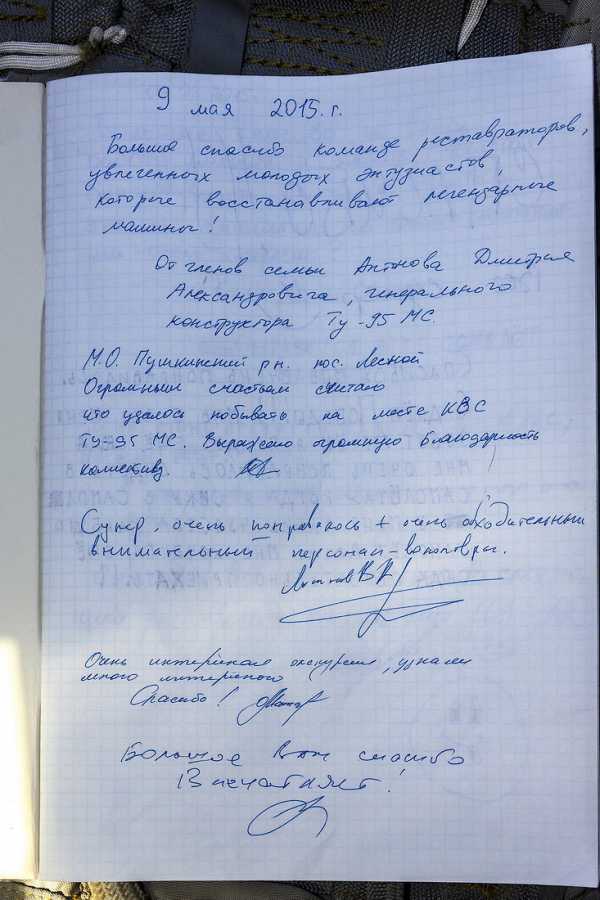 9 мая 2015. г.
Большое спасибо команде реставраторов,
увлеченных молодых энтузиастов,
которые восстанавливают легендарные
машины!
От членов семьи Антонова Дмитрия
Александровича, генерального
конструктора Ту-95 МС
М.О. Пушкинский р-н. пос. Лесной
Огромным счастьем считаю
что удалось побывать на месте КВС
ТУ-95 МС. Выражаю огромную благодарность
коллективу.
Супер, очень понравилось + очень обходительный
внимательный персонал-волонтёры.
Очень интересная экскурсия, узнали
много интересного
Спасибо!
Большое Вам спасибо
Впечатляет!